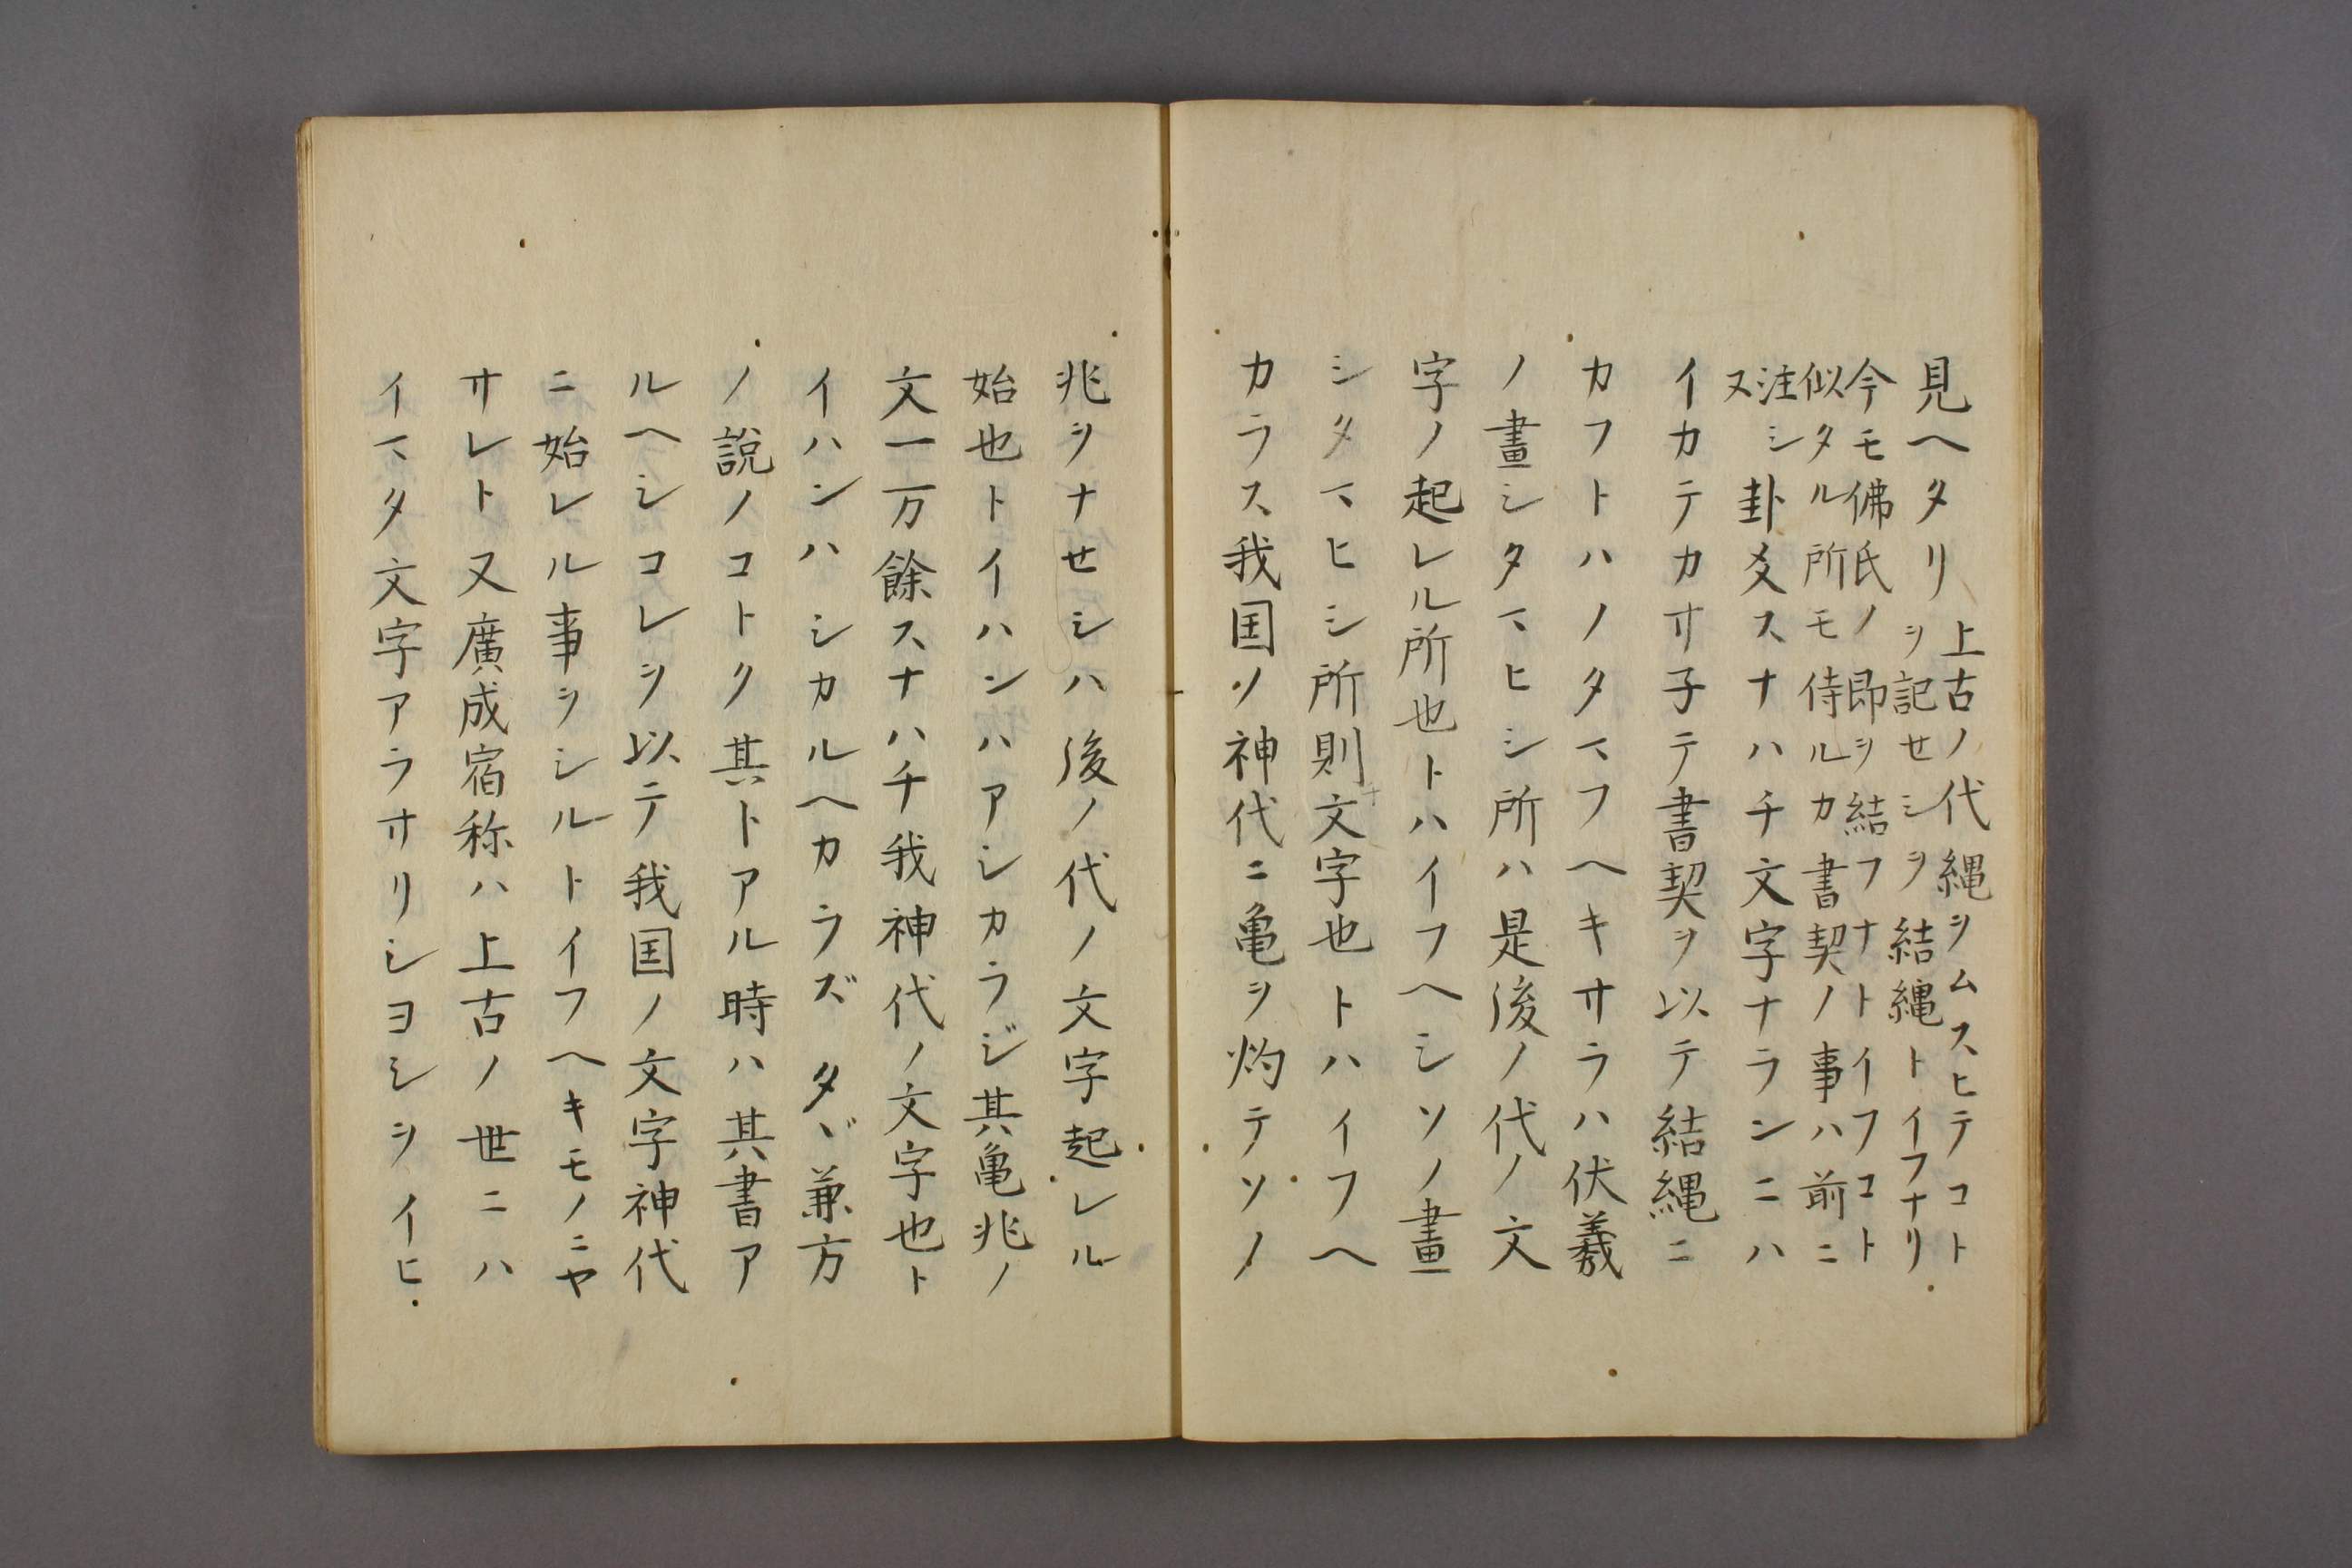 見ヘタリ
上古ノ代縄ヲムスヒテコト
ヲ記セシヲ結縄トイフナリ
今モ佛氏ノ即ヲ結フナトイフコト
似タル所モ侍ルカ書契ノ事ハ前ニ
注シ
又卦爻スナハチ文字ナランニハ
イカテカサ子テ書契ヲ以テ結縄ニ
カフトハノタマフヘキサラハ伏羲
ノ畫シタマヒシ所ハ是後ノ代ノ文
字ノ起レル所也トハイフヘシソノ畫
シタマヒシ所則文字也トハイフヘ
カラス我国ノ神代ニ亀ヲ灼テソノ
兆ヲナセシハ後ノ代ノ文字起レル
始也トイハンハアシカラジ其亀兆ノ
文一万餘スナハチ我神代ノ文字也ト
イハンハシカルヘカラズタヾ兼方
ノ説ノコトク其トアル時ハ其書ア
ルヘシコレヲ以テ我国ノ文字神代
ニ始レル事ヲシルトイフヘキモノニヤ
サレト又廣成宿称ハ上古ノ世ニハ
イマタ文字アラサリシヨシヲイヒ